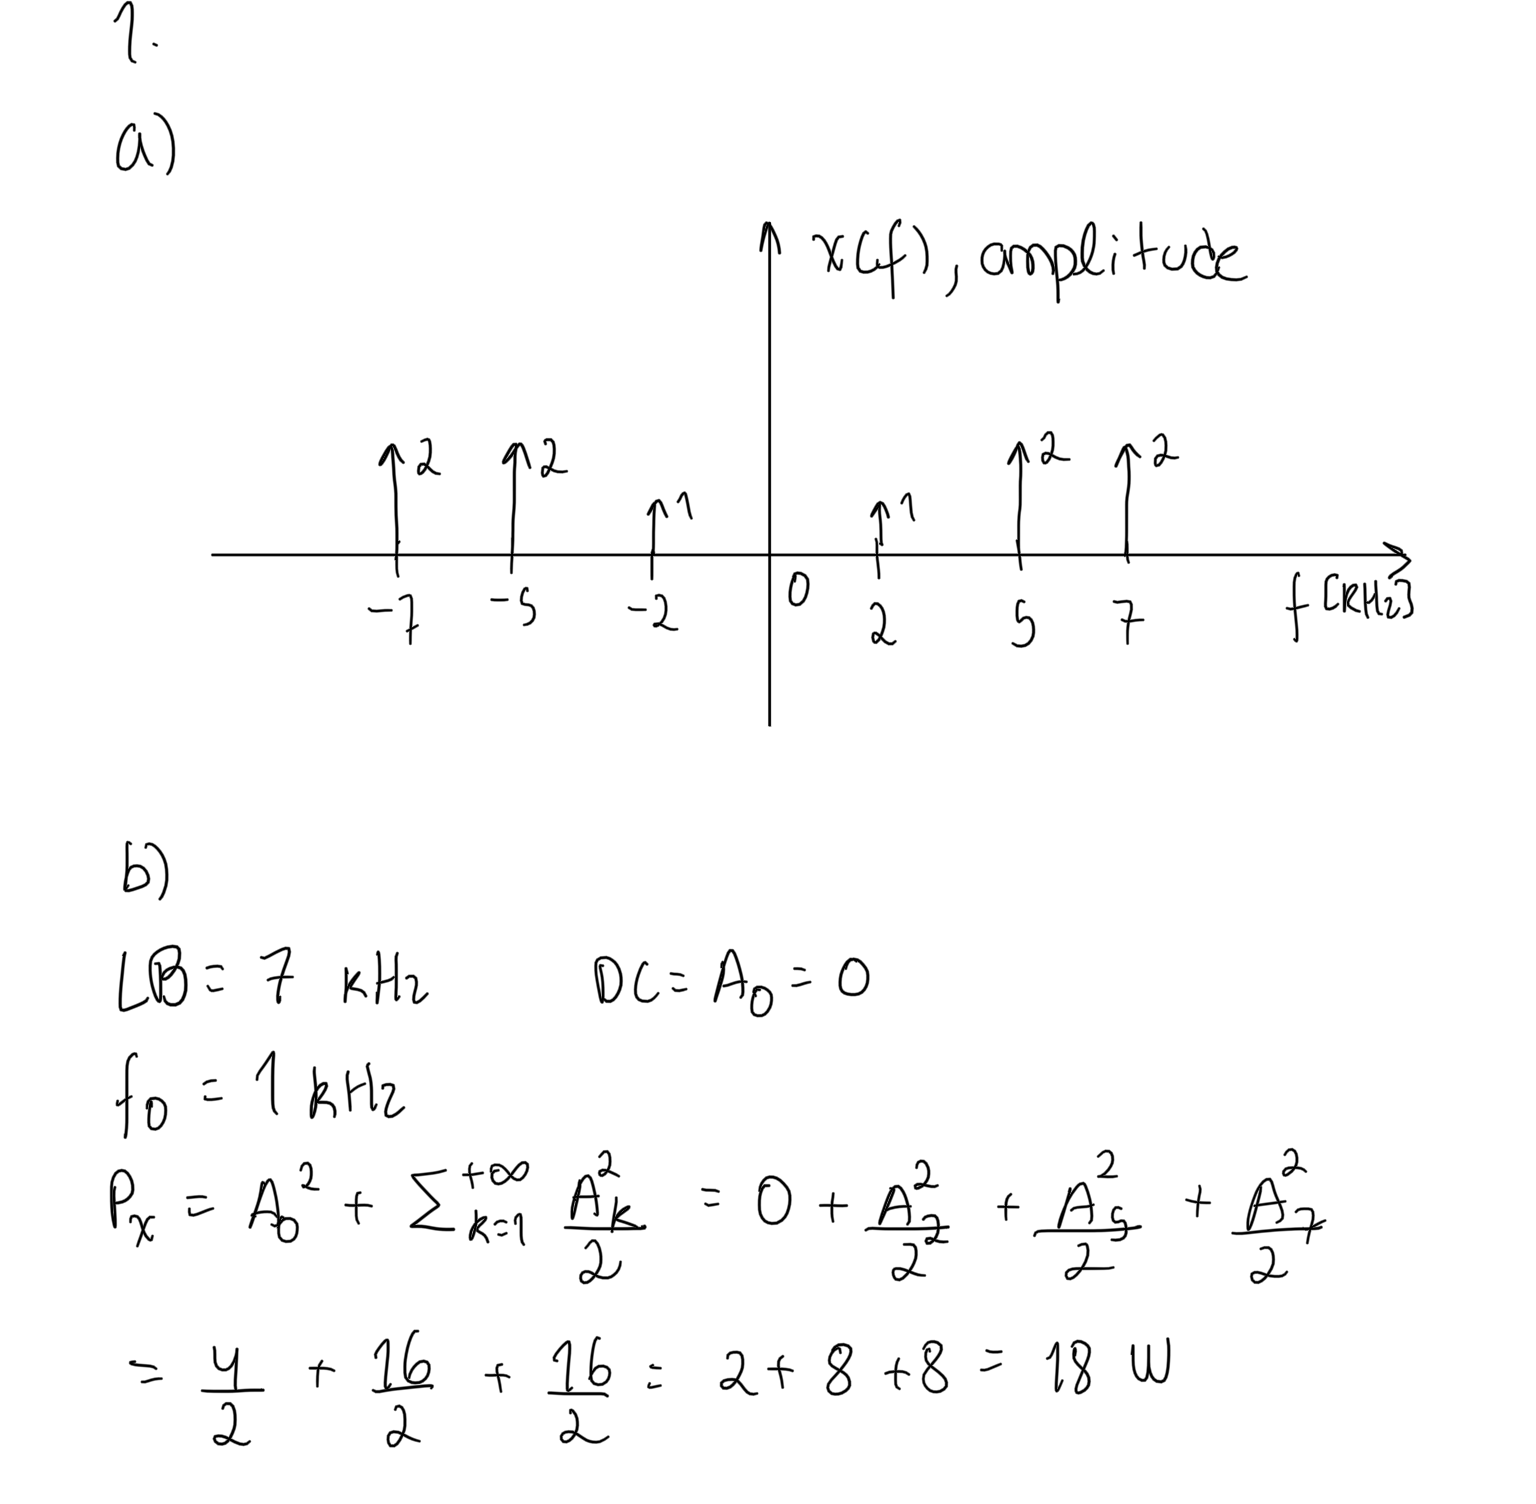 1.
a)
x(f), amplitude
2 2 1 1 2 2
-7 -5 -2 0 2 5 7 f [kHz]
b)
LB = 7 kHz DC = A₀ = 0
f₀ = 1 kHz
Pₓ = A₀² + Σ_{k=1}^{+∞} A_k²/2 = 0 + A₂²/2 + A₅²/2 + A₇²/2
= 4/2 + 16/2 + 16/2 = 2 + 8 + 8 = 18 W